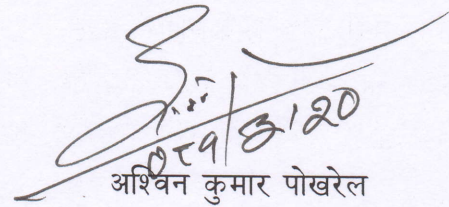 ०८१/३/२०
अश्विन कुमार पोखरेल